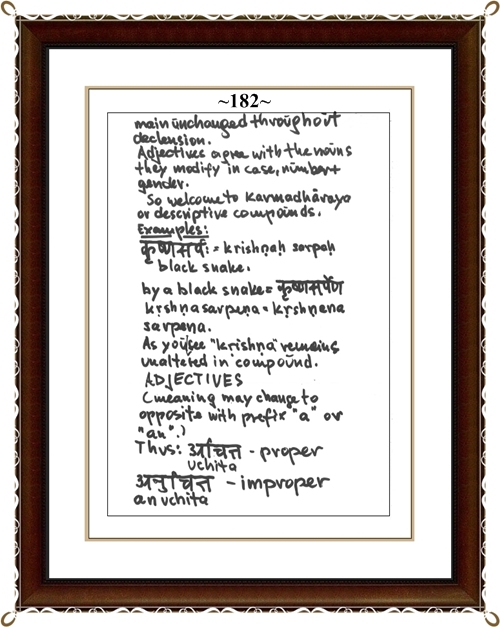 ~182~
main unchanged throughout
declension.
Adjectives agree with the nouns
they modify in case, number +
gender.
So welcome to Karmadhāraya
or descriptive compounds.
Examples:
कृष्णसर्पः = krishṇaḥ sarpaḥ
black snake.
by a black snake = कृष्णसर्पेण
kṛshṇasarpeṇa = kṛshṇena
sarpeṇa.
As you see "krishṇa" remains
unaltered in compound.
ADJECTIVES
(meaning may change to
opposite with prefix "a" or
"an".)
Thus: उचित्त - proper
uchita
अनुचित्त - improper
anuchita